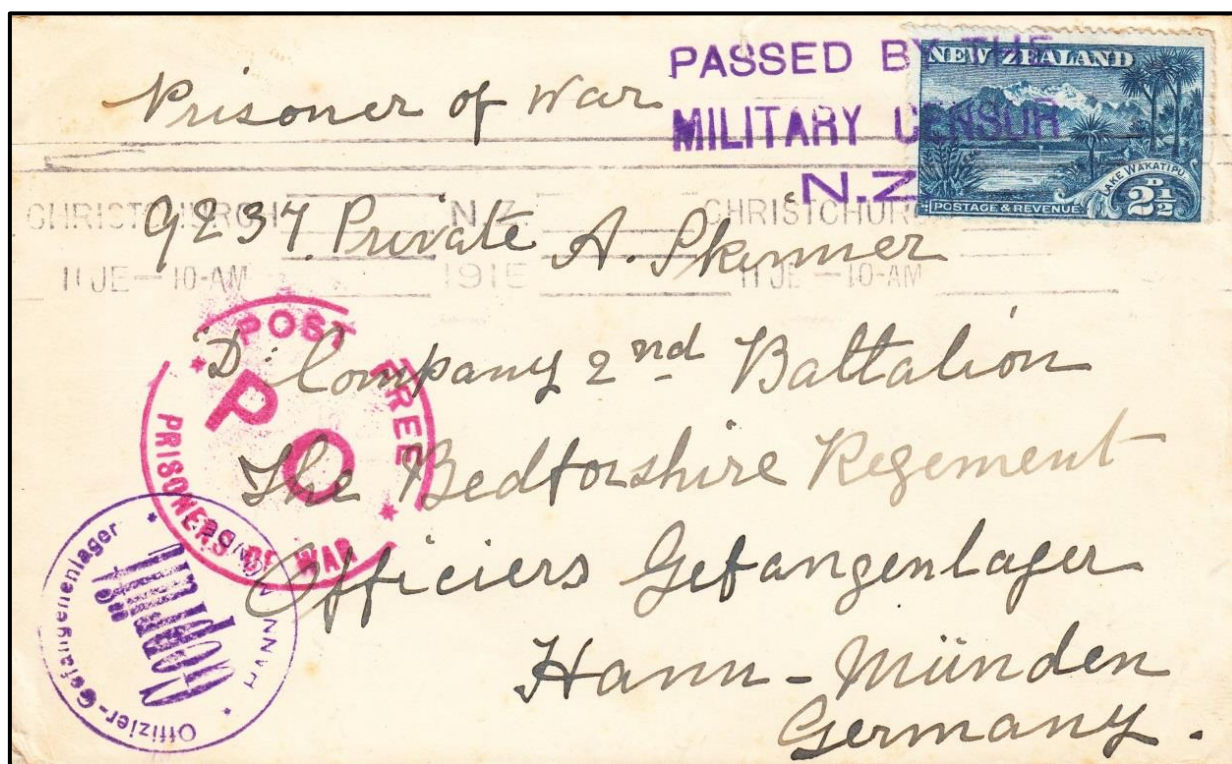 Prisoner of War
PASSED BY THE
MILITARY CENSOR
N.Z.
NEW ZEALAND
LAKE WAKATIPU
POSTAGE & REVENUE
2½D
CHRISTCHURCH N.Z. CHRISTCHURCH
11 JE — 10-AM 1915 11 JE — 10-AM
9237 Private A. Skinner
"D" Company 2nd Battalion
The Bedforshire Regement
Officiers Gefangenlager
Hann-Münden
Germany.
POST FREE
P O
PRISONERS OF WAR
Offizier-Gefangenenlager
Geprüft
HANN.